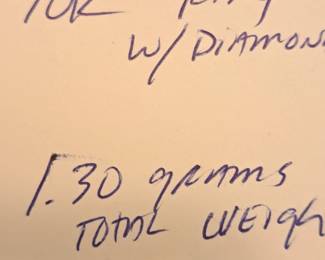 10K RING
W/ DIAMON
1.30 GRAMS
TOTAL WEIGH